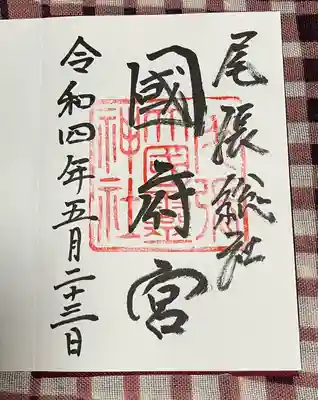 尾張総社
國府宮
令和四年五月二十三日